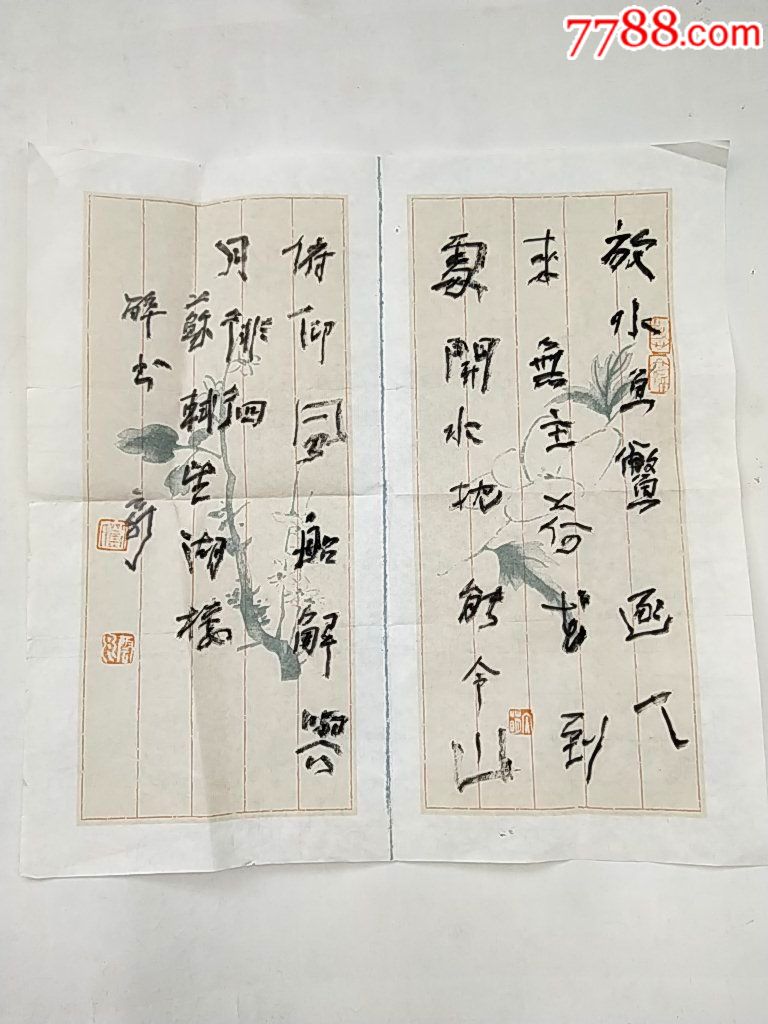 7788.com
放水魚鱉逐人
来無主荷花到
處開水枕能令山
俯仰風船解與
月徘徊
蘇軾望湖樓
醉书